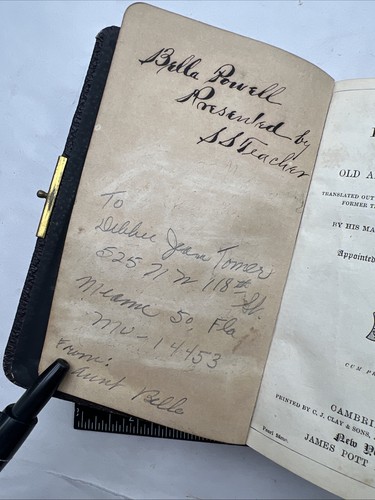 Bella Powell
Presented by
S S Teacher
To
Debbie Jean Tomer
525 N W 118th St.
Miame 50, Fla
Mu-14453
From:
Aunt Bella
OLD A
TRANSLATED OUT
FORMER T
BY HIS MA
Appointed
CUM P
CAMBRI
PRINTED BY C. J. CLAY & SONS,
New
Pearl 24mo.
JAMES POTT